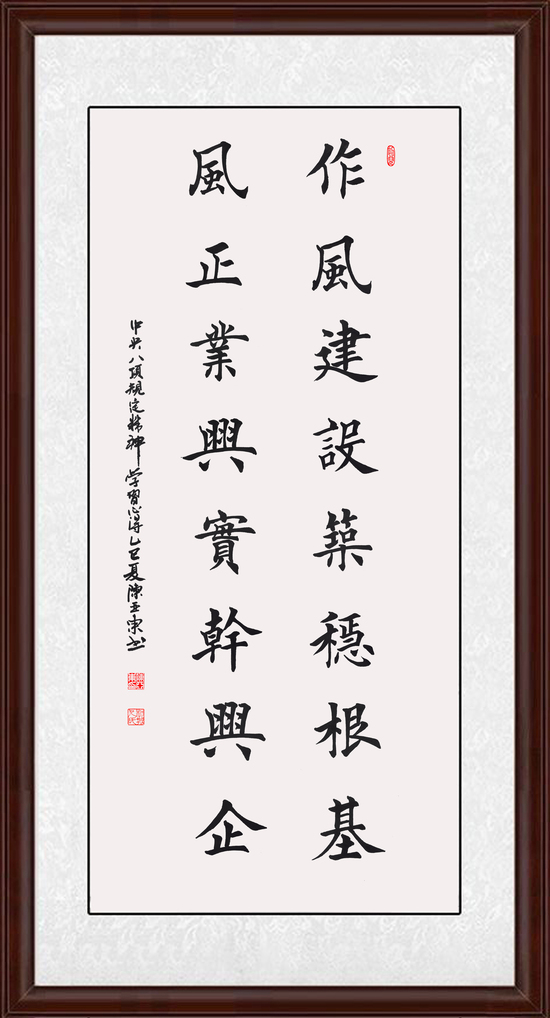 作風建設築穩根基
風正業興實幹興企
中央八项规定精神学習心得乙巳夏陳玉東书